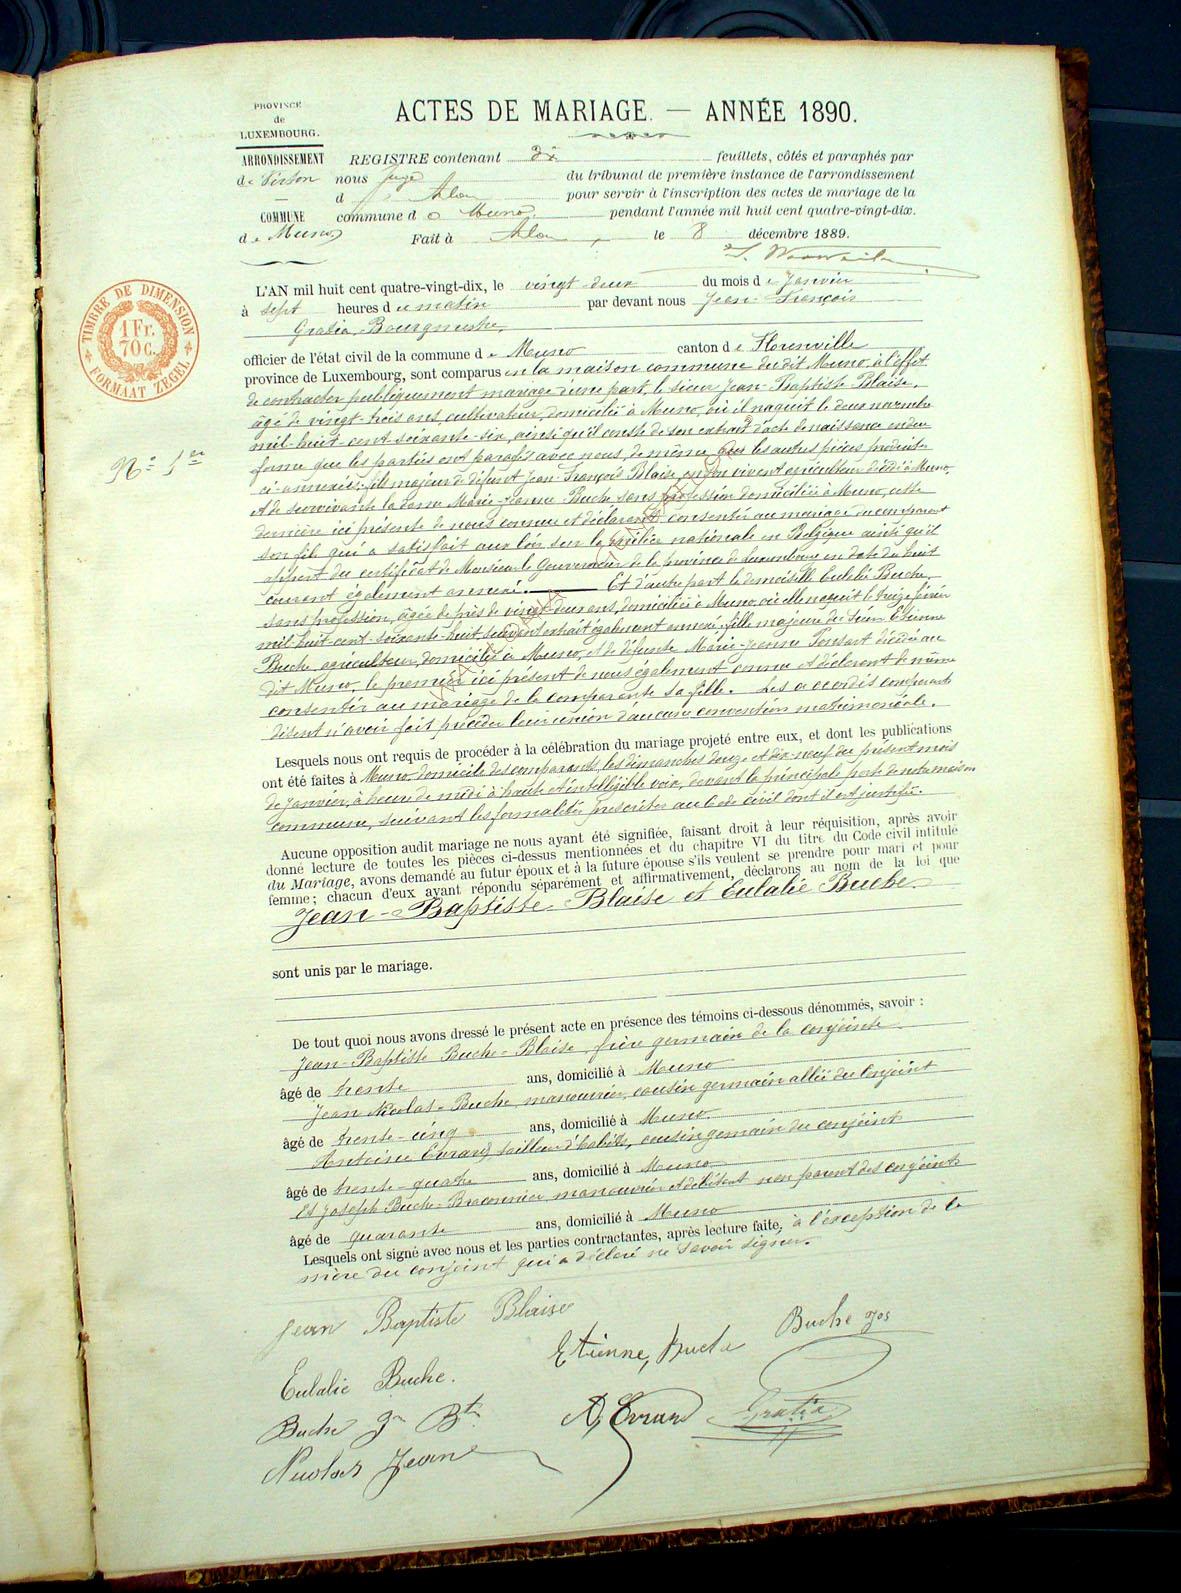 PROVINCE
de
LUXEMBOURG.
ARRONDISSEMENT
de Virton
COMMUNE
de Muno
ACTES DE MARIAGE. — ANNÉE 1890.
REGISTRE contenant dix feuillets, côtés et paraphés par
nous Juge du tribunal de première instance de l'arrondissement
d'Arlon pour servir à l'inscription des actes de mariage de la
commune de Muno pendant l'année mil huit cent quatre-vingt-dix.
Fait à Arlon, le 8 décembre 1889.
TIMBRE DE DIMENSION
1 Fr.
70 c.
FORMAAT ZEGEL
N° 1er
L'AN mil huit cent quatre-vingt-dix, le vingt-deux du mois de Janvier
à sept heures du matin par devant nous Jean-François
Gratia, Bourgmestre,
officier de l'état civil de la commune de Muno canton de Florenville
province de Luxembourg, sont comparus en la maison commune du dit Muno, à l'effet
de contracter publiquement mariage d'une part, le sieur Jean-Baptiste Blaise,
âgé de vingt-trois ans, cultivateur, domicilié à Muno, où il naquit le deux novembre
mil-huit-cent-soixante-six, ainsi qu'il conste de son extrait d'acte de naissance en due
forme que les parties ont parafé avec nous, de même que les autres pièces produites
ci-annexées; fils majeur de défunt Jean-François Blaise, en son vivant agriculteur décédé à Muno,
et de survivante la dame Marie-Jeanne Buche sans profession domiciliée à Muno, cette
dernière ici présente de nous connue et déclarant consentir au mariage du comparant
son fils qui a satisfait aux lois sur la milice nationale en Belgique ainsi qu'il
appert du certificat de Monsieur le Gouverneur de la province de Luxembourg en date du huit
courant également annexé. — Et d'autre part la demoiselle Eulalie Buche,
sans profession, âgée de près de vingt-deux ans, domiciliée à Muno, où elle naquit le treize février
mil-huit-cent-soixante-huit suivant extrait également annexé, fille majeure du sieur Etienne
Buche agriculteur, domicilié à Muno, et de défunte Marie-Jeanne Ponsart décédée au
dit Muno, le premier ici présent de nous également connu et déclarant de même
consentir au mariage de la comparante sa fille. Les accordés comparants
disent n'avoir fait précéder leur union d'aucune convention matrimoniale.
Lesquels nous ont requis de procéder à la célébration du mariage projeté entre eux, et dont les publications
ont été faites à Muno, domicile des comparants, les dimanches douze et dix-neuf du présent mois
de Janvier, à heure de midi à haute et intelligible voix, devant la principale porte de notre maison
commune, suivant les formalités prescrites au Code civil dont il est justifié.
Aucune opposition audit mariage ne nous ayant été signifiée, faisant droit à leur réquisition, après avoir
donné lecture de toutes les pièces ci-dessus mentionnées et du chapitre VI du titre du Code civil intitulé
du Mariage, avons demandé au futur époux et à la future épouse s'ils veulent se prendre pour mari et pour
femme; chacun d'eux ayant répondu séparément et affirmativement, déclarons au nom de la loi que
Jean-Baptiste Blaise et Eulalie Buche
sont unis par le mariage.
De tout quoi nous avons dressé le présent acte en présence des témoins ci-dessous dénommés, savoir :
Jean-Baptiste Buche-Blaise, frère germain de la conjointe
âgé de trente ans, domicilié à Muno
Jean Nicolas-Buche, manouvrier, cousin germain allié du conjoint
âgé de trente-cinq ans, domicilié à Muno.
Antoine Evrard, tailleur d'habits, cousin germain du conjoint
âgé de trente-quatre ans, domicilié à Muno
et Joseph Buche-Braconnier manouvrier non parent des conjoints
âgé de quarante ans, domicilié à Muno
Lesquels ont signé avec nous et les parties contractantes, après lecture faite, à l'exception de la
mère du conjoint qui a déclaré ne savoir signer.
Jean Baptiste Blaise
Etienne, Buche
Buche Jos
Eulalie Buche.
Buche Jn Bte
A, Evrard
Gratia
Nicolas Jean